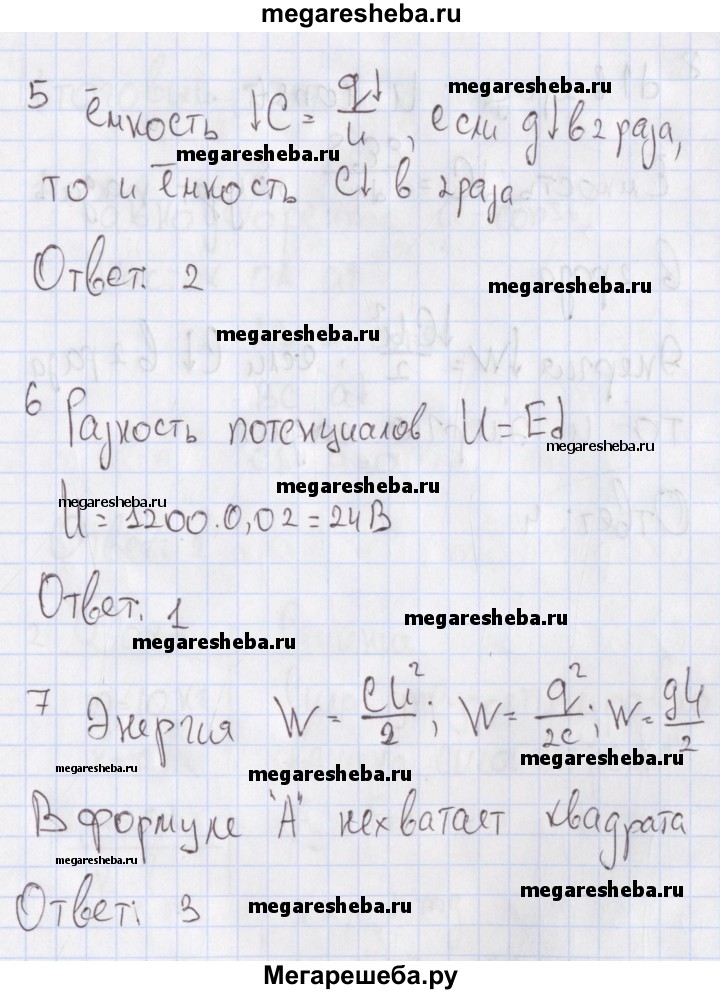 megaresheba.ru
megaresheba.ru
5 Ёмкость ↓C = q↓/u, если q↓ в 2 раза,
megaresheba.ru
то и ёмкость C↓ в 2 раза
Ответ: 2
megaresheba.ru
megaresheba.ru
6 Разность потенциалов U = Ed
megaresheba.ru
megaresheba.ru
megaresheba.ru
U = 1200·0,02 = 24 В
Ответ: 1
megaresheba.ru
megaresheba.ru
7 Энергия W = CU²/2; W = q²/2C; W = qU/2
megaresheba.ru
megaresheba.ru
megaresheba.ru
В формуле "А" нехватает квадрата
megaresheba.ru
megaresheba.ru
Ответ: 3
megaresheba.ru
Мегарешеба.ру